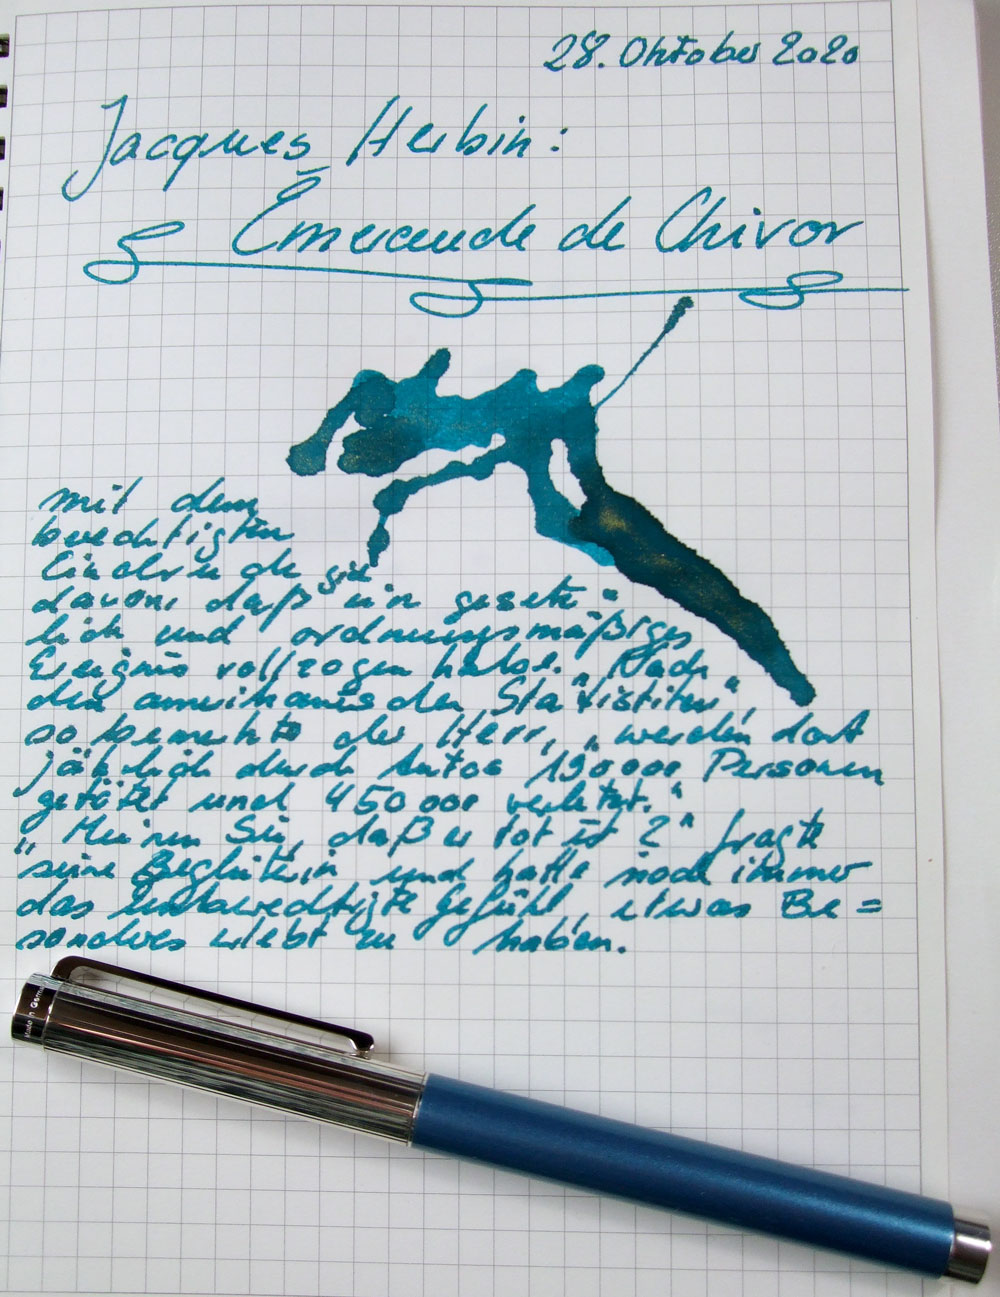 28. Oktober 2020
Jacques Herbin:
Émeraude de Chivor
mit dem
berechtigten
Eindrucke
davon, daß sich ein gesetz=
lich und ordnungsmäßiges
Ereignis vollzogen habe. „Nach
den amerikanischen Statistiken“,
so bemerkte der Herr, „werden dort
jährlich durch Autos 190000 Personen
getötet und 450000 verletzt.“
„Meinen Sie, daß er tot ist?“ fragte
seine Begleiterin und hatte noch immer
das unberechtigte Gefühl, etwas Be=
sonderes erlebt zu haben.
Made in Germany